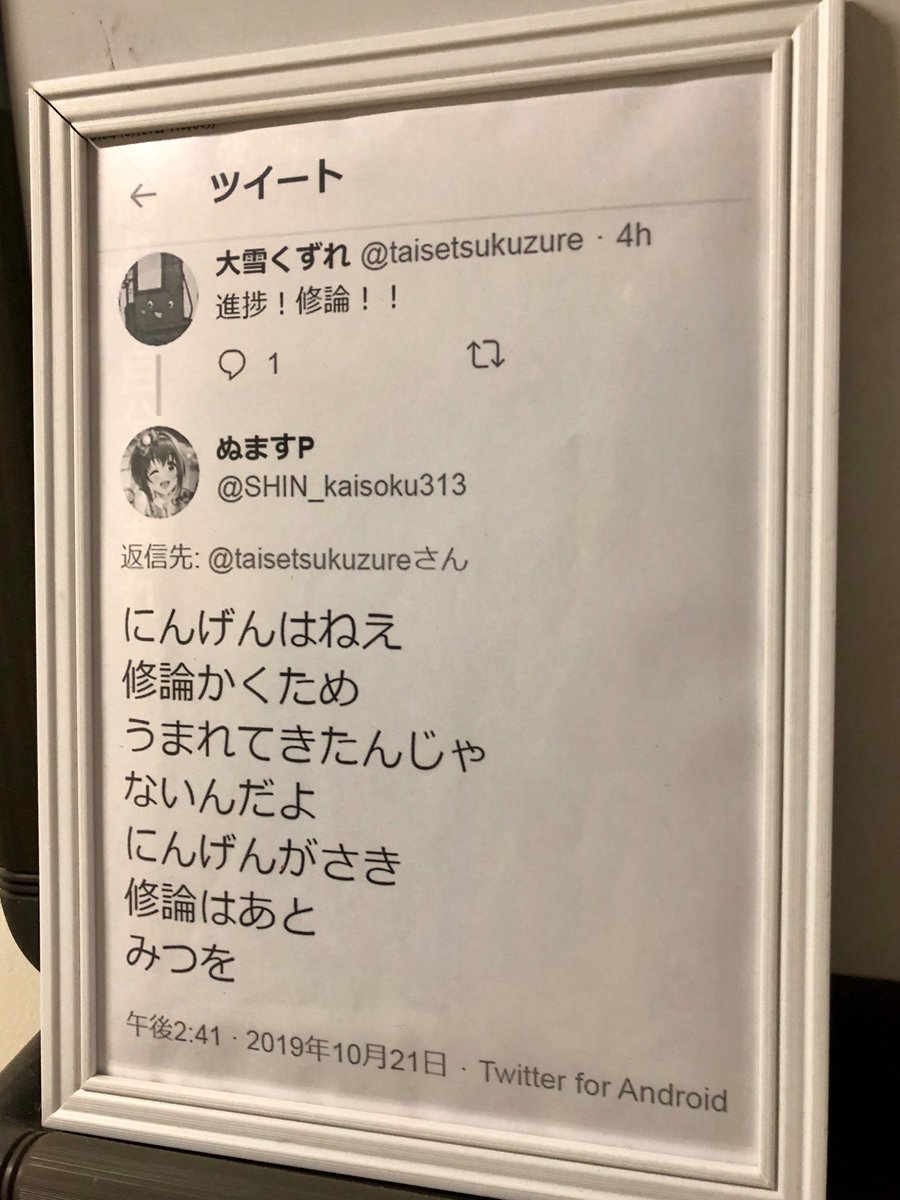 ← ツイート
大雪くずれ @taisetsukuzure · 4h
進捗！修論！！
1
ぬますP
@SHIN_kaisoku313
返信先: @taisetsukuzureさん
にんげんはねえ
修論かくため
うまれてきたんじゃ
ないんだよ
にんげんがさき
修論はあと
みつを
午後2:41 · 2019年10月21日 · Twitter for Android